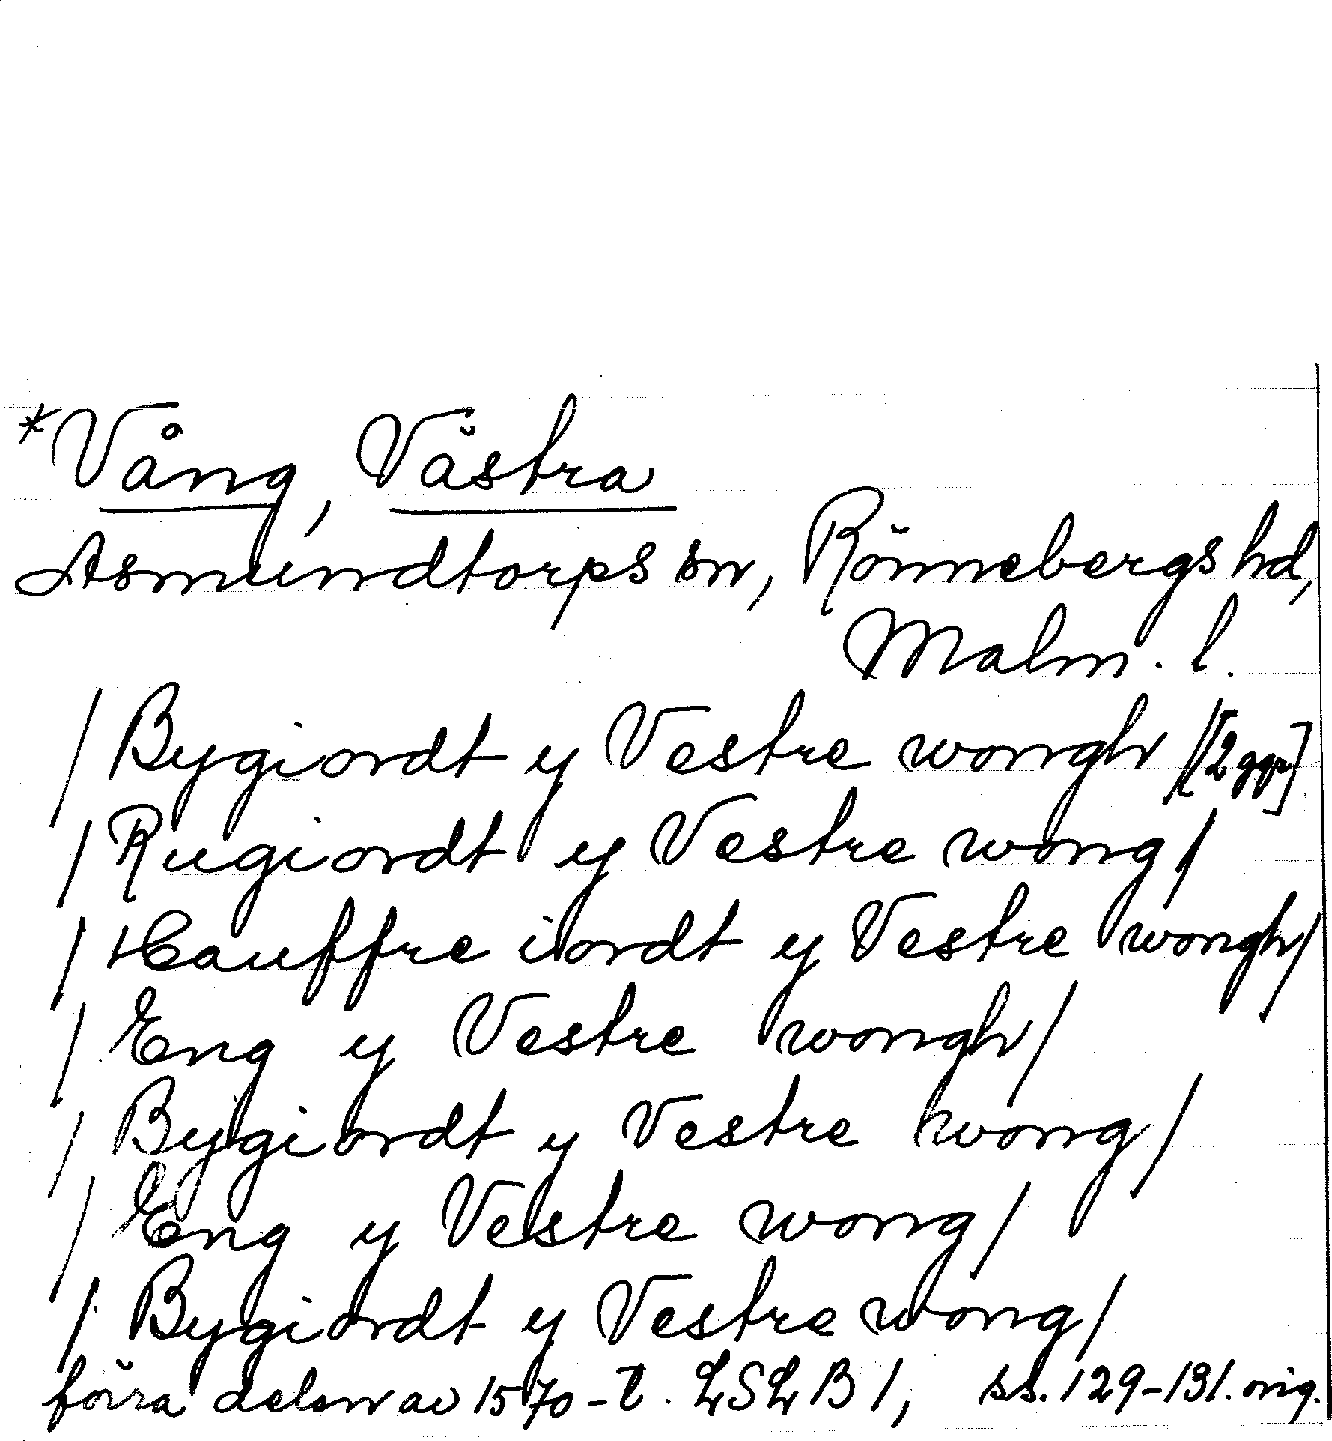 *Vång, Västra
Asmundtorps sn, Rönnebergs hd,
Malm. l.
/ Bygiordt y Vestre wongh / [2 ggr]
/ Rugiordt y Vestre wong /
/ Hauffre iordt y Vestre wongh /
/ Eng y Vestre wongh /
/ Bygiordt y Vestre wong /
/ Eng y Vestre wong /
/ Bygiordt y Vestre wong /
förra delen av 1570-t. LSLB 1, ss. 129-131. orig.